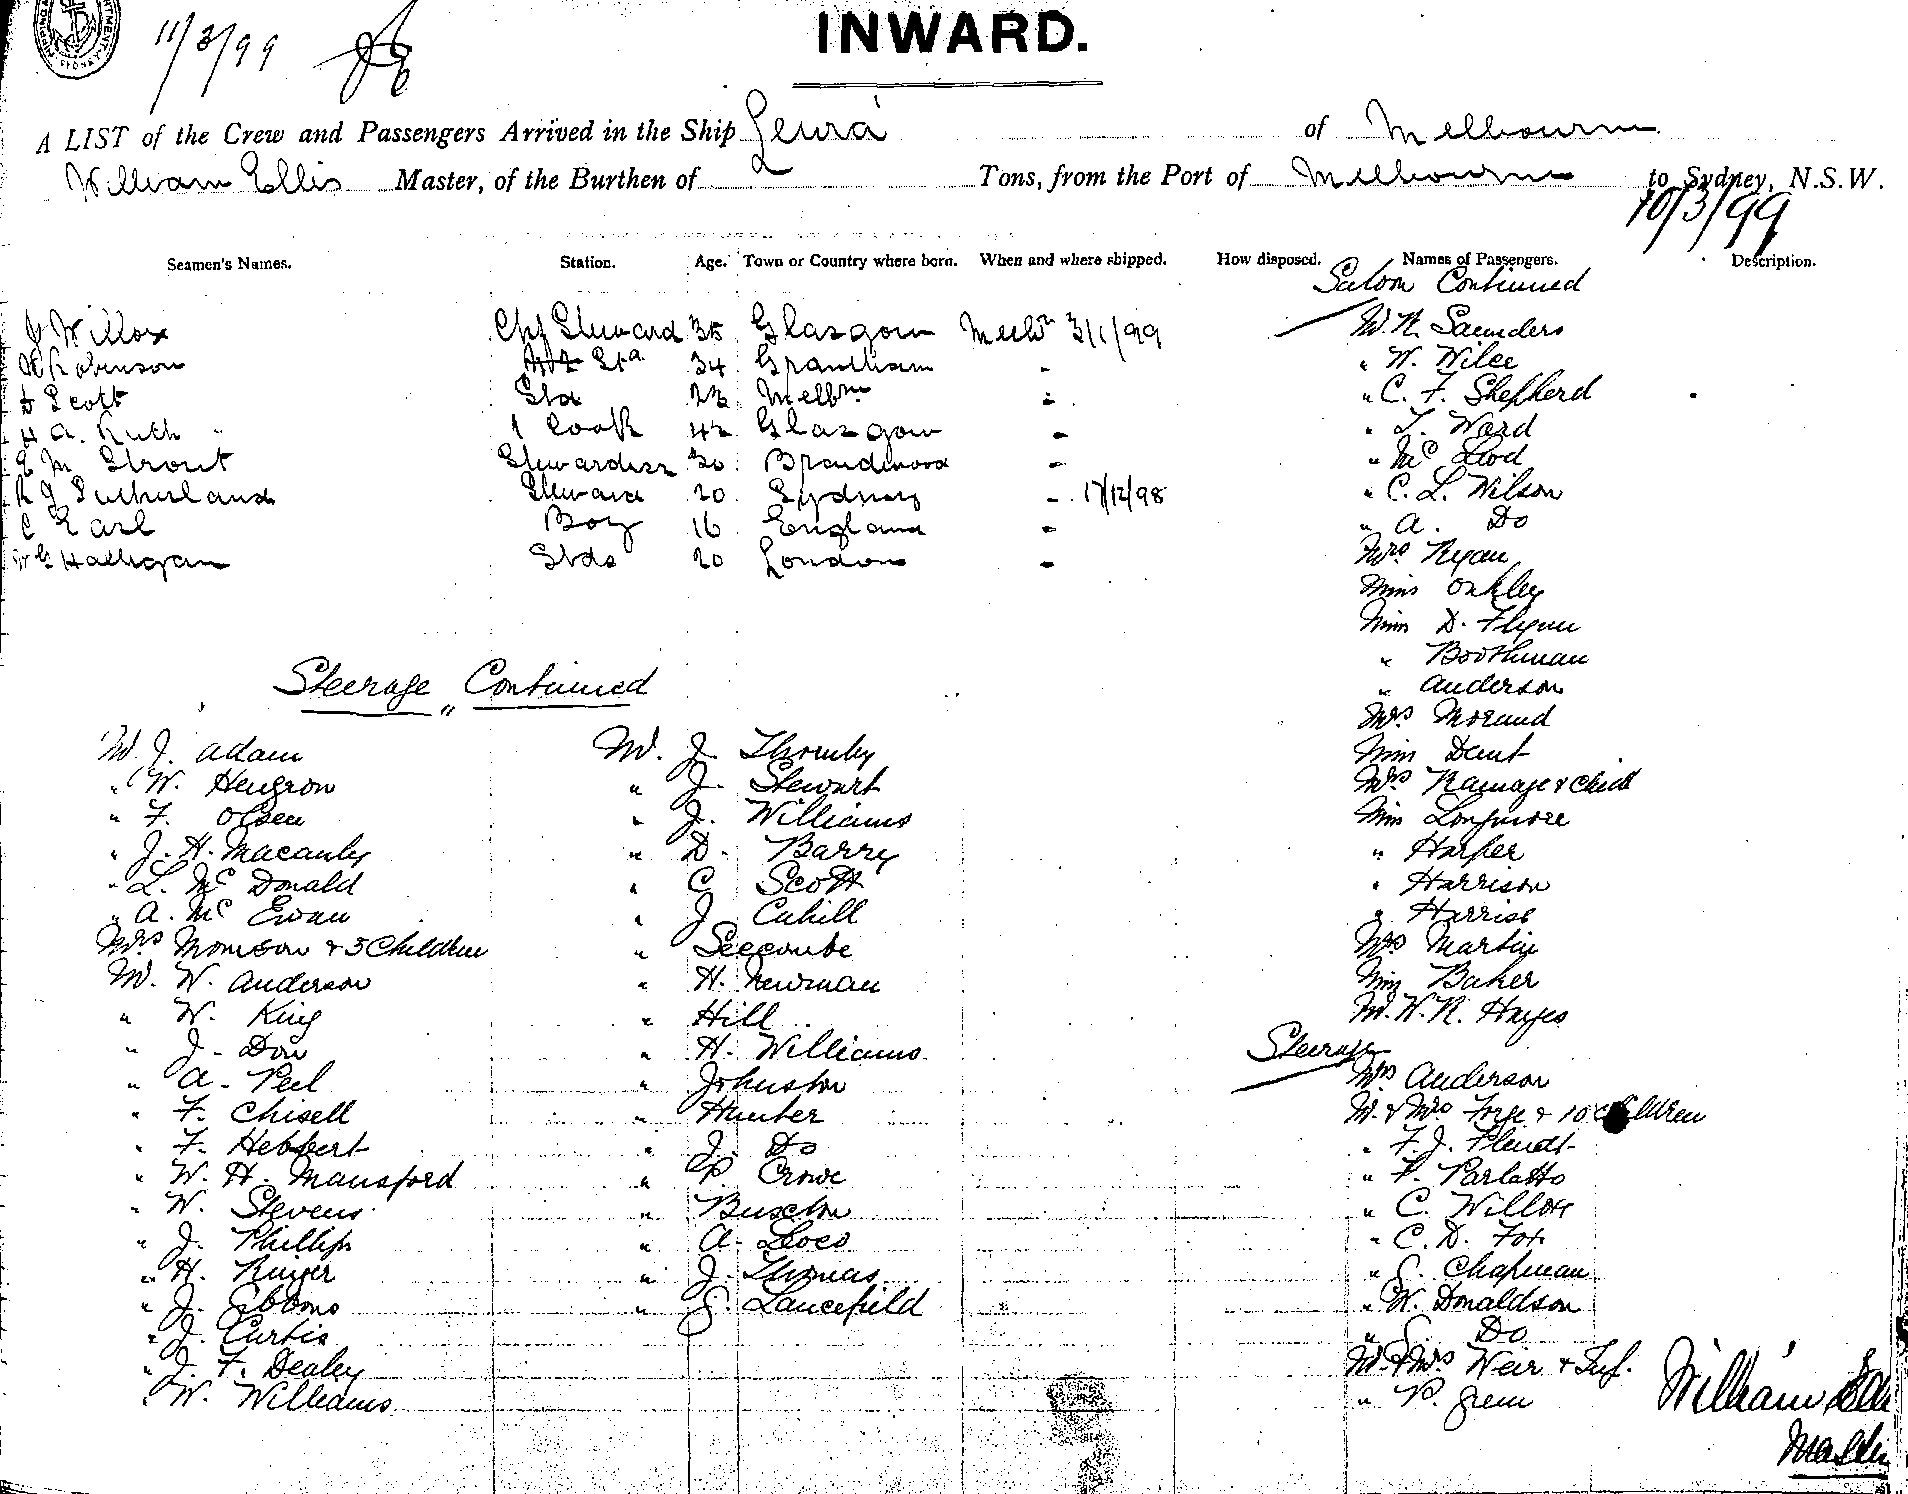 11/3/99
INWARD.
A LIST of the Crew and Passengers Arrived in the Ship Leura of Melbourne
William Ellis Master, of the Burthen of Tons, from the Port of Melbourne to Sydney, N.S.W.
10/3/99
Seamen's Names. Station. Age. Town or Country where born. When and where shipped. How disposed. Names of Passengers. Description.
J Willox Chf Steward 35 Glasgow Melbn 3/1/99
Robinson 34 Grantham "
Scott 23 Melbn "
A. Ruth 1 Cook 42 Glasgow "
M Strout Stewardess 30 "
R J Sutherland Steward 20 Sydney " 17/12/98
C Earl Boy 16 England "
Halligan Stds 20 London "
Saloon Continued
W. R. Saunders
" W. Wilce
" C. F. Shepherd
" T. Ward
" Mc Leod
" C. L. Wilson
" A. Do
Mrs Ryan
Miss Oakley
Miss D. Flynn
" Boothman
" Anderson
Mrs Morand
Miss Dent
Mrs Ramage & Child
Miss Longmore
" Harper
" Harrison
" Harriss
Mrs Martin
Miss Baker
M. W. R. Hayes
Steerage
Mrs Anderson
M. & Mrs Forge & 10 Children
" F. J. Flendt
" P. Parlatto
" C. Willott
" C. D. Fox
" S. Chapman
" W. Donaldson
" S. Do
M. & Mrs Weir & Inf.
" P. Green
Steerage Continued
M. J. Adam
" W. Hengron
" F. Olsen
" J. H. Macauly
" L. Mc Donald
" A. Mc Ewan
Mrs Morrison & 3 Children
M. W. Anderson
" W. King
" J. Dow
" A. Peel
" F. Chisell
" F. Hebbert
" W. H. Mansford
" W. Stevens
" J. Phillips
" H.
" J. Gibbons
" J. Curtis
" J. F. Dealey
" W. Williams
M. J. Thornby
" J. Stewart
" J. Williams
" D. Barry
" C Scott
" J Cahill
" Seccombe
" H. Newman
" Hill
" H. Williams
" Johnston
" Hunter
" J. Do
" P. Crowe
" Buxton
" A.
" J. Thomas
" G. Lancefield
William Ellis
Master